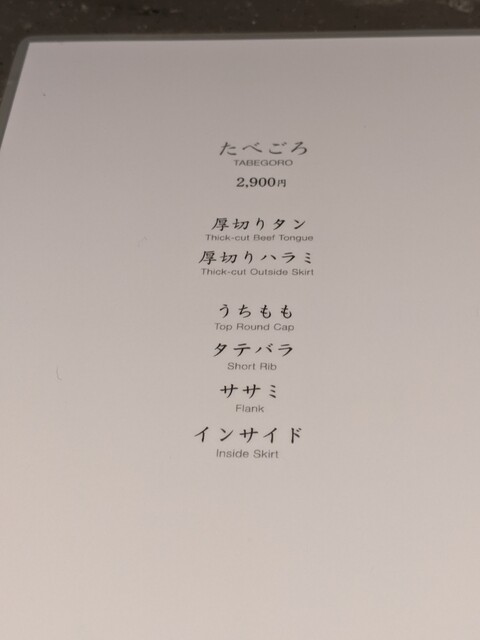 たべごろ
TABEGORO
2,900円
厚切りタン
Thick-cut Beef Tongue
厚切りハラミ
Thick-cut Outside Skirt
うちもも
Top Round Cap
タテバラ
Short Rib
ササミ
Flank
インサイド
Inside Skirt